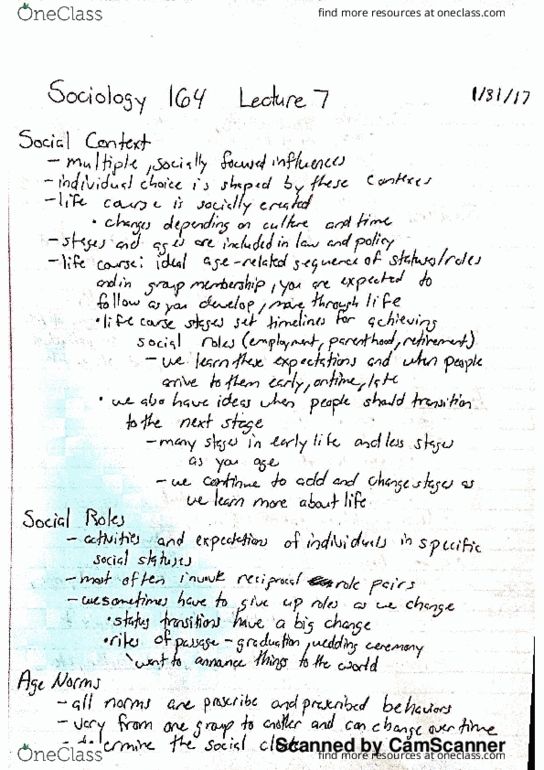 OneClass
find more resources at oneclass.com
Sociology 164 Lecture 7 1/31/17
Social Context
- multiple, socially focused influences
- individual choice is shaped by these contexts
- life course is socially created
• changes depending on culture and time
- stages and ages are included in law and policy
- life course: ideal age-related sequence of status/roles
and in group membership, you are expected to
follow as you develop, move through life
• life course stages set timelines for achieving
social roles (employment, parenthood, retirement)
- we learn these expectations and when people
arrive to them early, ontime, late
• we also have ideas when people should transition
to the next stage
- many stages in early life and less stages
as you age
- we continue to add and change stages as
we learn more about life
Social Roles
- activities and expectations of individuals in specific
social statuses
- most often invovk reciprocal role pairs
- we sometimes have to give up roles as we change
• status transitions have a big change
• rites of passage - graduation, wedding ceremony
want to annance things to the world
Age Norms
- all norms are proscribe and prescribed behaviors
- vary from one group to another and can change over time
- determine the social
Scanned by CamScanner
OneClass
find more resources at oneclass.com